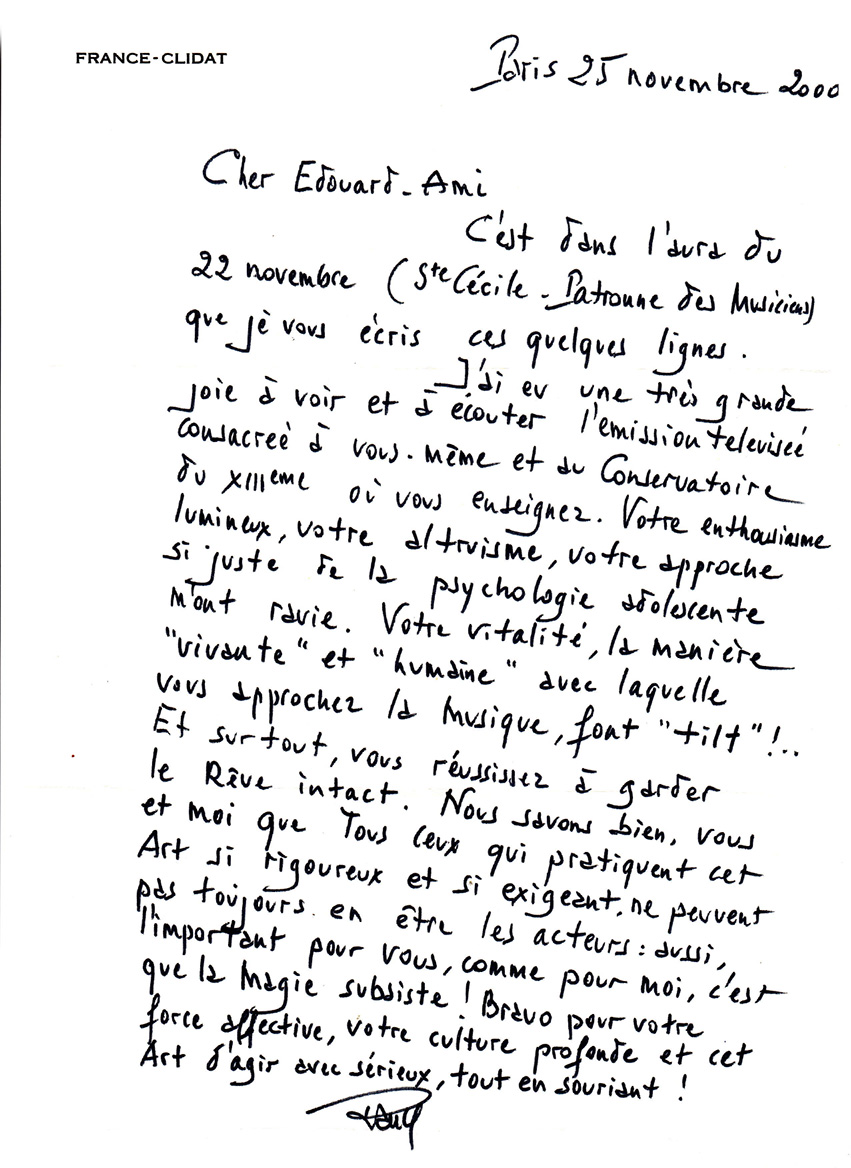 FRANCE-CLIDAT
Paris 25 novembre 2000
Cher Edouard-Ami
C'est dans l'aura du
22 novembre (Ste Cécile - Patronne des Musiciens)
que je vous écris ces quelques lignes.
J'ai eu une très grande
joie à voir et à écouter l'émission televiseé
consacreé à vous-même et au Conservatoire
du XIIIeme où vous enseignez. Votre enthousiasme
lumineux, votre altruisme, votre approche
si juste de la psychologie adolescente
m'ont ravie. Votre vitalité, la manière
"vivante" et "humaine" avec laquelle
vous approchez la Musique, font "tilt"!..
Et surtout, vous réussissez à garder
le Rêve intact. Nous savons bien, vous
et moi que Tous ceux qui pratiquent cet
Art si rigoureux et si exigeant, ne peuvent
pas toujours en être les acteurs : aussi,
l'important pour vous, comme pour moi, c'est
que la Magie subsiste ! Bravo pour votre
force affective, votre culture profonde et cet
Art d'agir avec sérieux, tout en souriant !